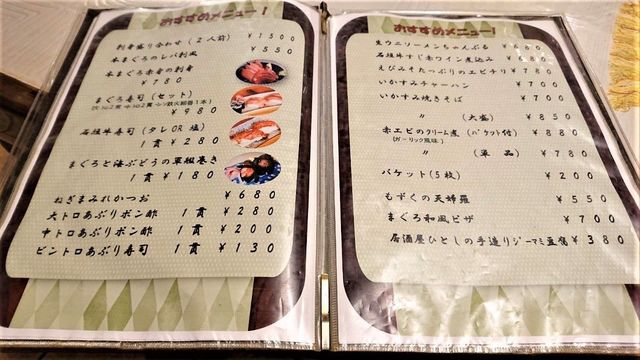 おすすめメニュー!
刺身盛り合わせ(2人前) ¥1500
本まぐろのレバ刺風 ¥550
本まぐろ赤身の刺身
¥780
まぐろ寿司(セット)
¥980
石垣牛寿司(タレOR塩)
1貫 ¥280
まぐろと海ぶどうの軍艦巻き
1貫 ¥180
ねぎまみれかつお ¥680
大トロあぶりポン酢 1貫 ¥280
中トロあぶりポン酢 1貫 ¥200
ビントロあぶり寿司 1貫 ¥130
おすすめメニュー!
生ウニソーメンちゃんぷる ¥680
石垣牛すじ赤ワイン煮込み ¥580
えびみそたっぷりのエビチリ ¥780
いかすみチャーハン ¥700
いかすみ焼きそば ¥700
〃 (大盛) ¥850
赤エビのクリーム煮 (バケット付) ¥880
(ガーリック風味)
〃 (単品) ¥780
バケット(5枚) ¥200
もずくの天婦羅 ¥550
まぐろ和風ピザ ¥700
居酒屋ひとしの手造りジーマミ豆腐 ¥380